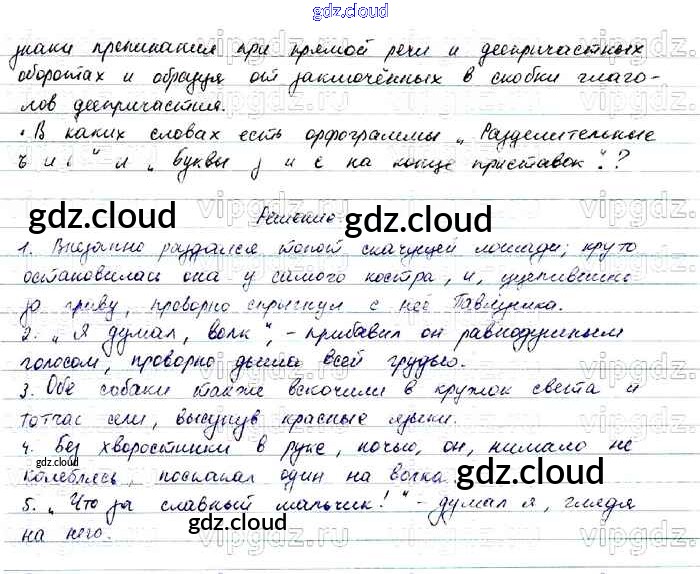 gdz.cloud
знаки препинания при прямой речи и деепричастных
оборотах и образуя от заключённых в скобки глаго-
лов деепричастия.
• В каких словах есть орфограммы „Разделительные
ъ и ь" и „буквы з и с на конце приставок"?
Решение
gdz.cloud gdz.cloud
1. Внезапно раздался топот скачущей лошади; круто
остановилась она у самого костра, и, уцепившись
за гриву, проворно спрыгнул с неё Павлушка.
2. „Я думал, волк", – прибавил он равнодушным
голосом, проворно дыша всей грудью.
3. Обе собаки также вскочили в кружок света и
тотчас сели, высунув красные языки.
4. Без хворостинки в руке, ночью, он, нимало не
колеблясь, поскакал один на волка
gdz.cloud gdz.cloud
5. „Что за славный мальчик!" – думал я, глядя
на него.
gdz.cloud gdz.cloud
vipgdz.ru